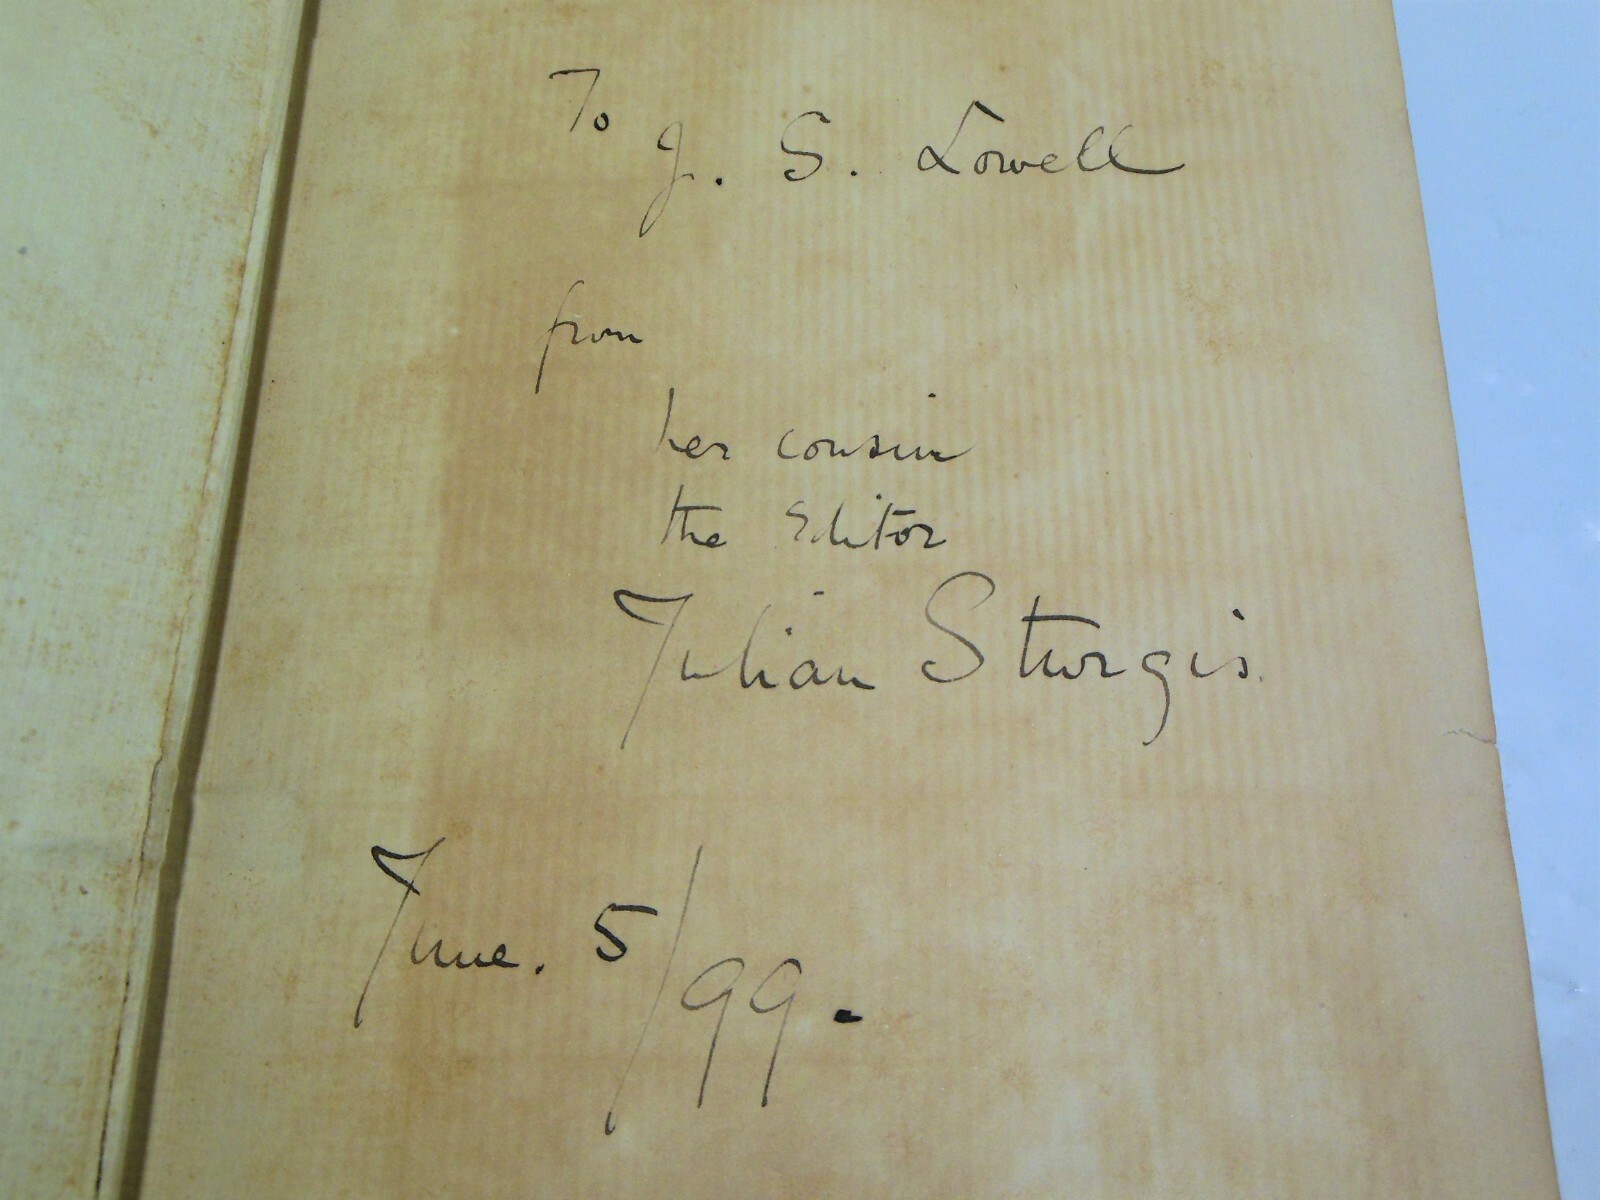 To
J. S. Lowell
from
her cousin
the Editor
Julian Sturgis.
June. 5/99.